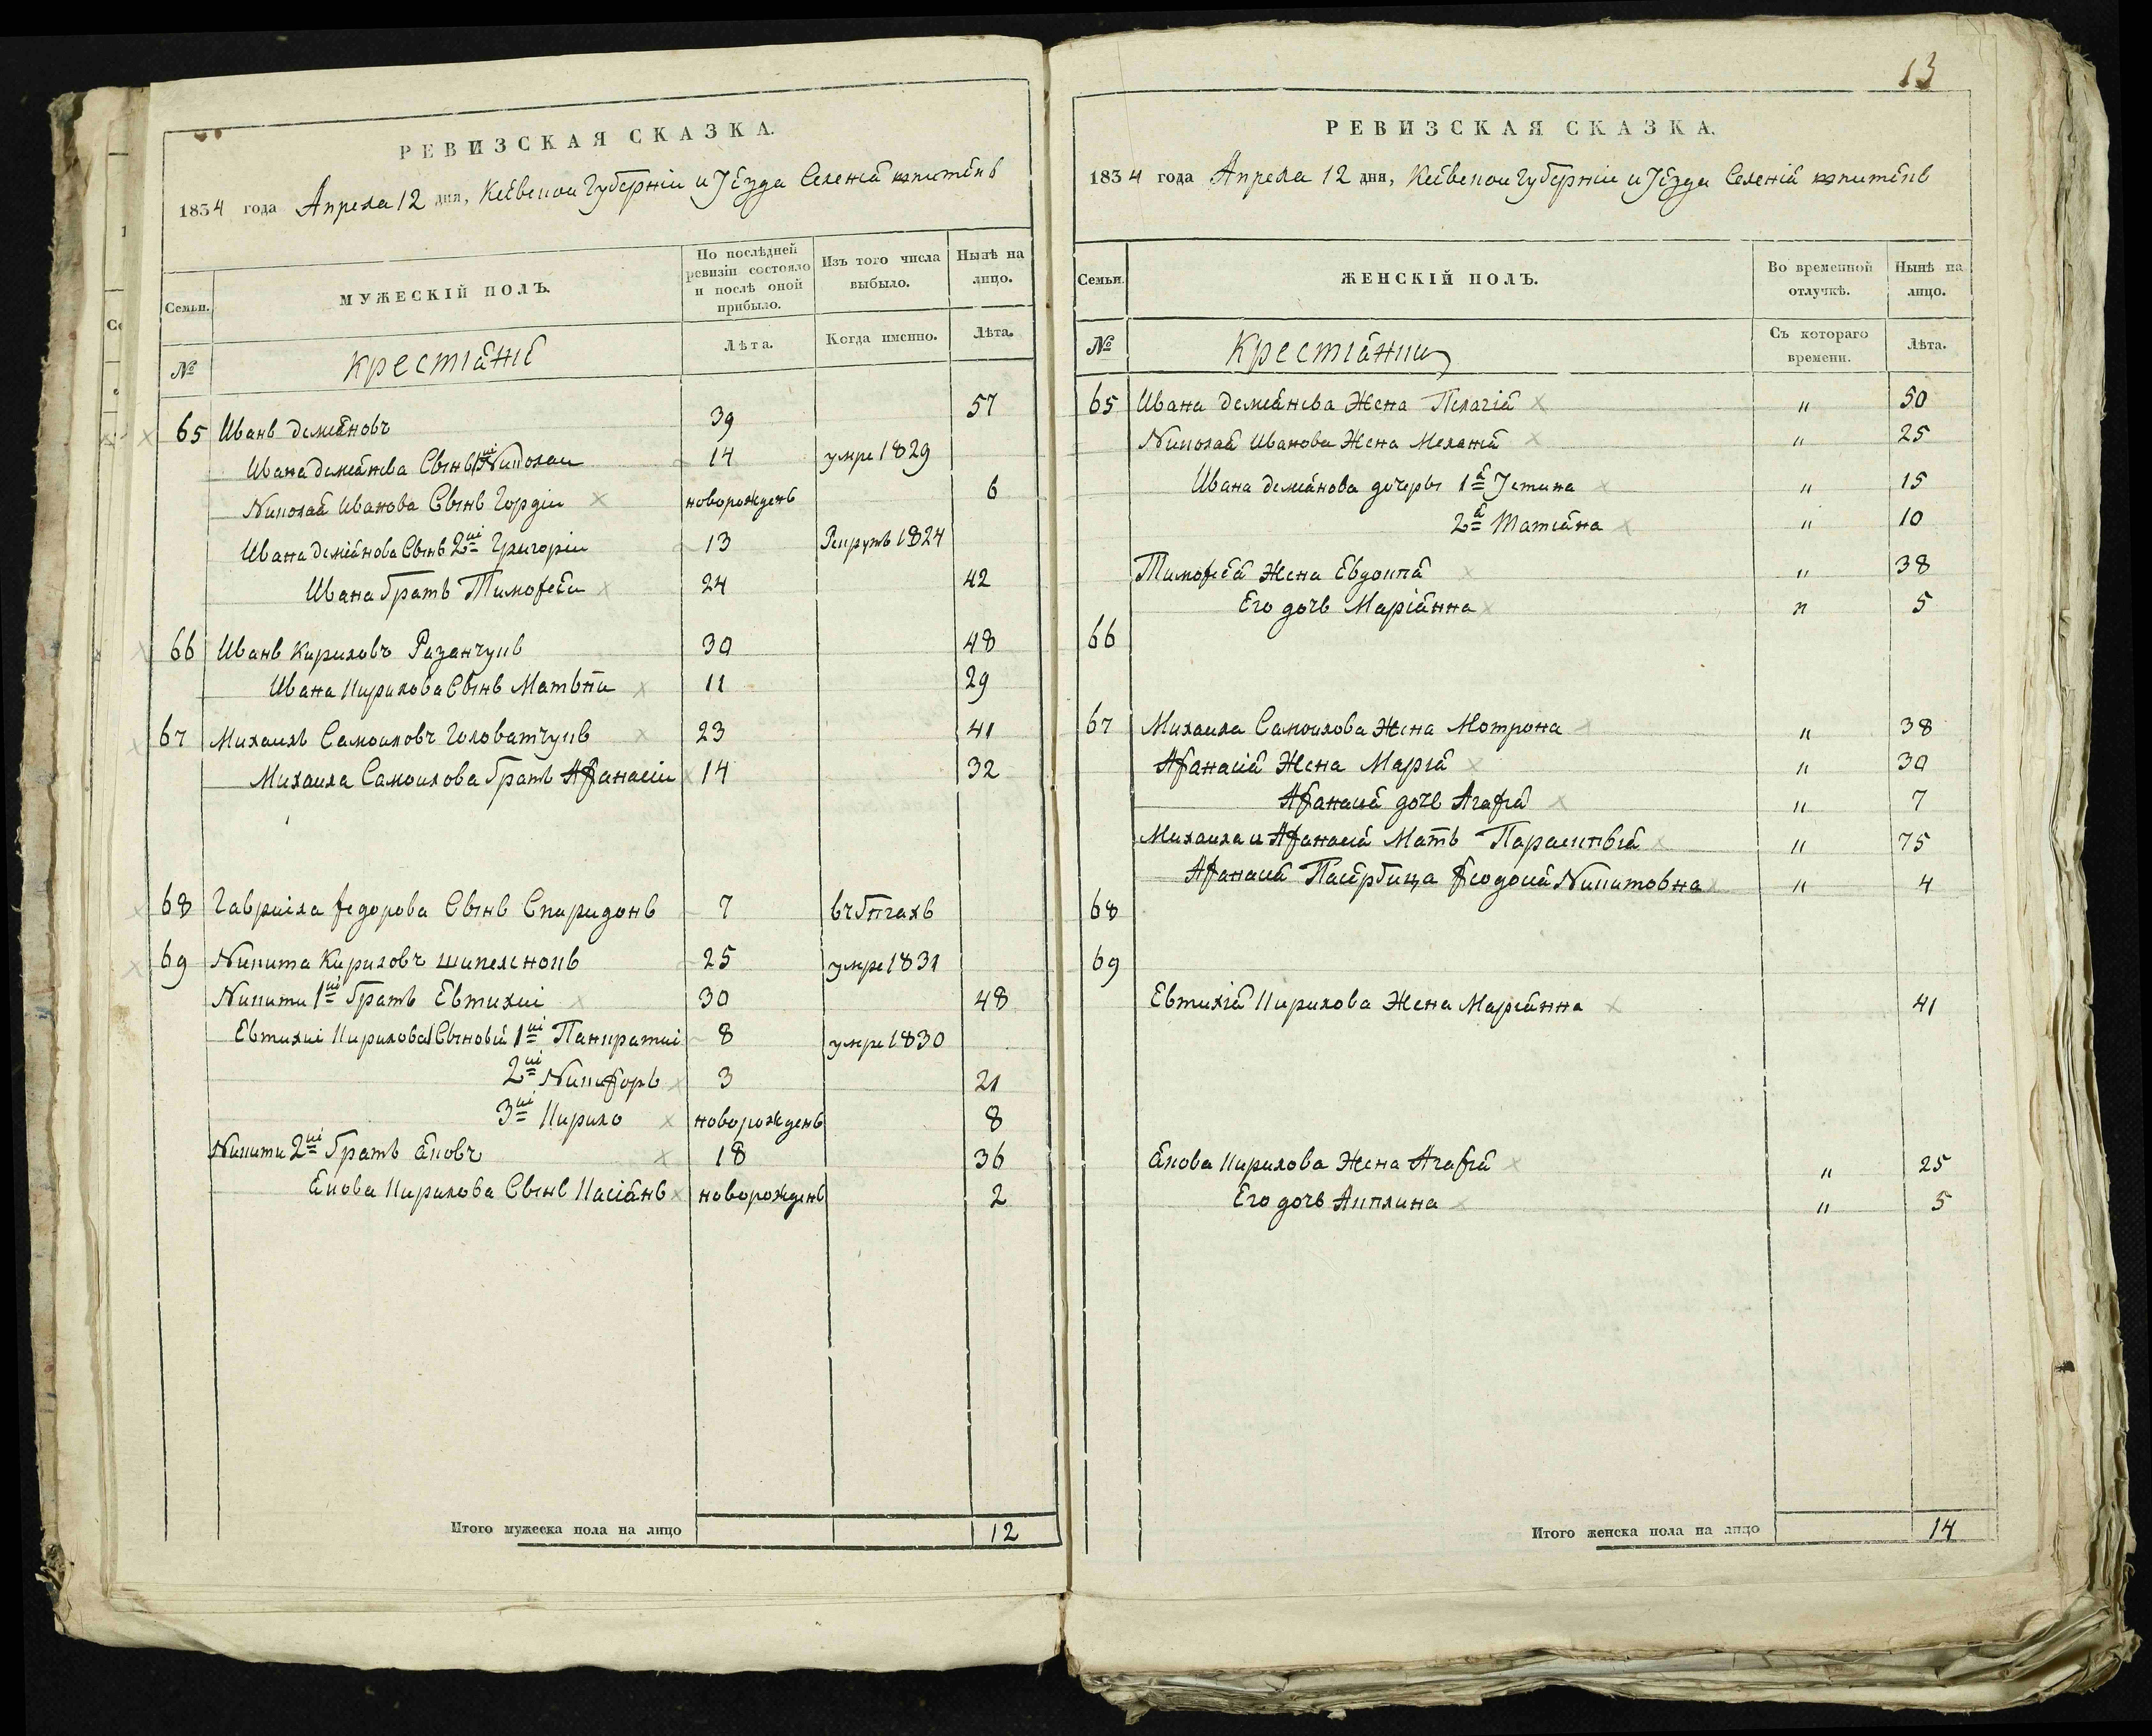 РЕВИЗСКАЯ СКАЗКА.
1834 года Апреля 12 дня, Кіевской Губерніи и Уезда Селенія
Семьи.
МУЖЕСКІЙ ПОЛЪ.
По послѣдней ревизіи состояло и послѣ оной прибыло.
Изъ того числа выбыло.
Нынѣ на лицо.
№
Крестіяне
Лѣта.
Когда именно.
Лѣта.
65 Иванъ Деміановъ 39 57
Ивана Деміанова Сынъ 1й Николаи 14 умре 1829
Николая Иванова Сынъ Гордіи новорожденъ 6
Ивана Деміанова Сынъ 2й Григоріи 13 Рекрутъ 1824
Ивана братъ Тимоѳеи 24 42
66 Иванъ Кириловъ 30 48
Ивана Кирилова Сынъ Матвѣи 11 29
67 Михаилъ Самоиловъ Головатчукъ 23 41
Михаила Самоилова братъ Афанасіи 14 32
68 Гавриіла Федорова Сынъ Спиридонъ 7 въ бѣгахъ
69 Никита Кириловъ 25 умре 1831
Никити 1й братъ Евтихіи 30 48
Евтихіи Кирилова Сыновя 1й Панкратіи 8 умре 1830
2й Никифоръ 3 21
3й Кирило новорожденъ 8
Никити 2й братъ Яковъ 18 36
Якова Кирилова Сынъ Касіянъ новорожденъ 2
Итого мужеска пола на лицо 12
13
РЕВИЗСКАЯ СКАЗКА.
1834 года Апреля 12 дня, Кіевской Губерніи и Уезда Селенія
Семьи.
ЖЕНСКІЙ ПОЛЪ.
Во временной отлучкѣ.
Нынѣ на лицо.
№
Крестіянки
Съ котораго времени.
Лѣта.
65 Ивана Деміанова Жена Пелагія " 50
Николая Иванова Жена Меланія " 25
Ивана Деміанова дочеры 1я Устина " 15
2я Татіяна " 10
Тимоѳея Жена Евдокія " 38
Его дочь Маріянна " 5
66
67 Михаила Самоилова Жена Мотрона " 38
Афанасія Жена Марія " 30
Афанасія дочь Агафія " 7
Михаила и Афанасія Мать Параскевія " 75
Афанасія Пасербица Феодосія Никитовна " 4
68
69
Евтихія Кирилова Жена Маріянна 41
Якова Кирилова Жена Агафія " 25
Его дочь Акилина " 5
Итого женска пола на лицо 14